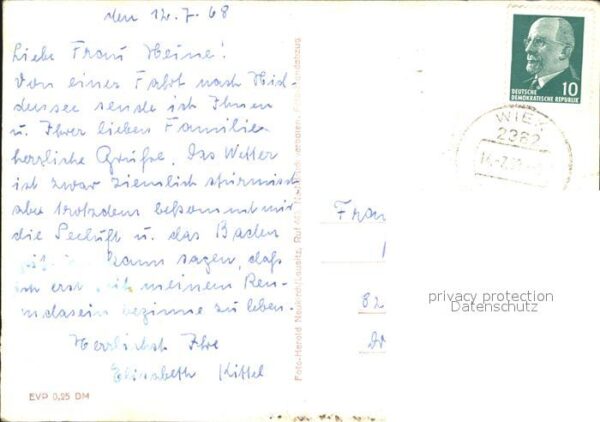 den 12.7.68
Liebe Frau Heine!
Von einer Fahrt nach Hid-
densee sende ich Ihnen
u. Ihrer lieben Familie
herzliche Grüße. Das Wetter
ist zwar ziemlich stürmisch
aber trotzdem bekommt mir
die Seeluft u. das Baden
kann sagen, daß
ich erst mit meinem Ren-
nerdasein beginne zu leben.
Herzlichst Ihre
Elisabeth Kittel
EVP 0,25 DM
Foto-Herold Neukirch/Lausitz, Ruf
10
DEUTSCHE
DEMOKRATISCHE REPUBLIK
WIEK
2382
Frau
82
privacy protection
Datenschutz